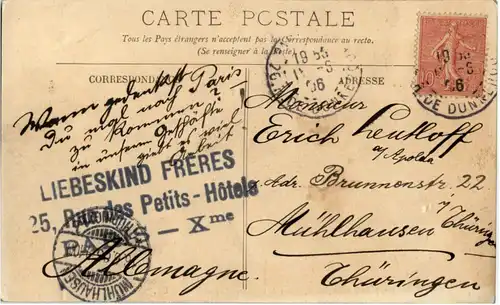 CARTE POSTALE
Tous les Pays étrangers n'acceptent pas la Correspondance au recto.
(Se renseigner à la Poste)
CORRESPONDANCE
ADRESSE
Wann gedenkst
Du mal nach Paris
zu kommen?
in unserem Geschäfte
giebt es viel
Arbeit!
LIEBESKIND FRÈRES
25, Rue des Petits-Hôtels
PARIS - Xme
Allemagne
Monsieur
Erich Leutloff
a/Apolda
Adr. Brunnenstr. 22
Mühlhausen i/Thüring
Thüringen
10
DE DUNKERQUE
MÜHLHAUSEN